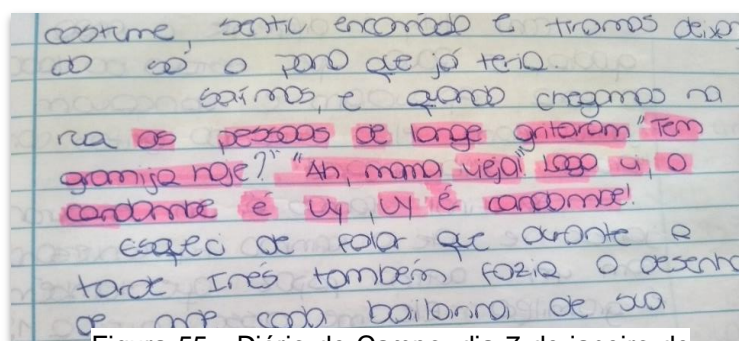 costume, sentiu encomodo e tiramos deixan
do só o pano que já teria.
saímos, e quando chegamos na
rua as pessoas de longe gritaram "Tem
gramija hoje?" "Ah, mama vieja!" Logo vi, o
candombe é Uy, Uy é candombe!
Esqueci de falar que durante a
tarde Inés também fazia o desenho
de onde cada bailarina de sua
Figura 55 - Diário de Campo, dia 7 de janeiro de